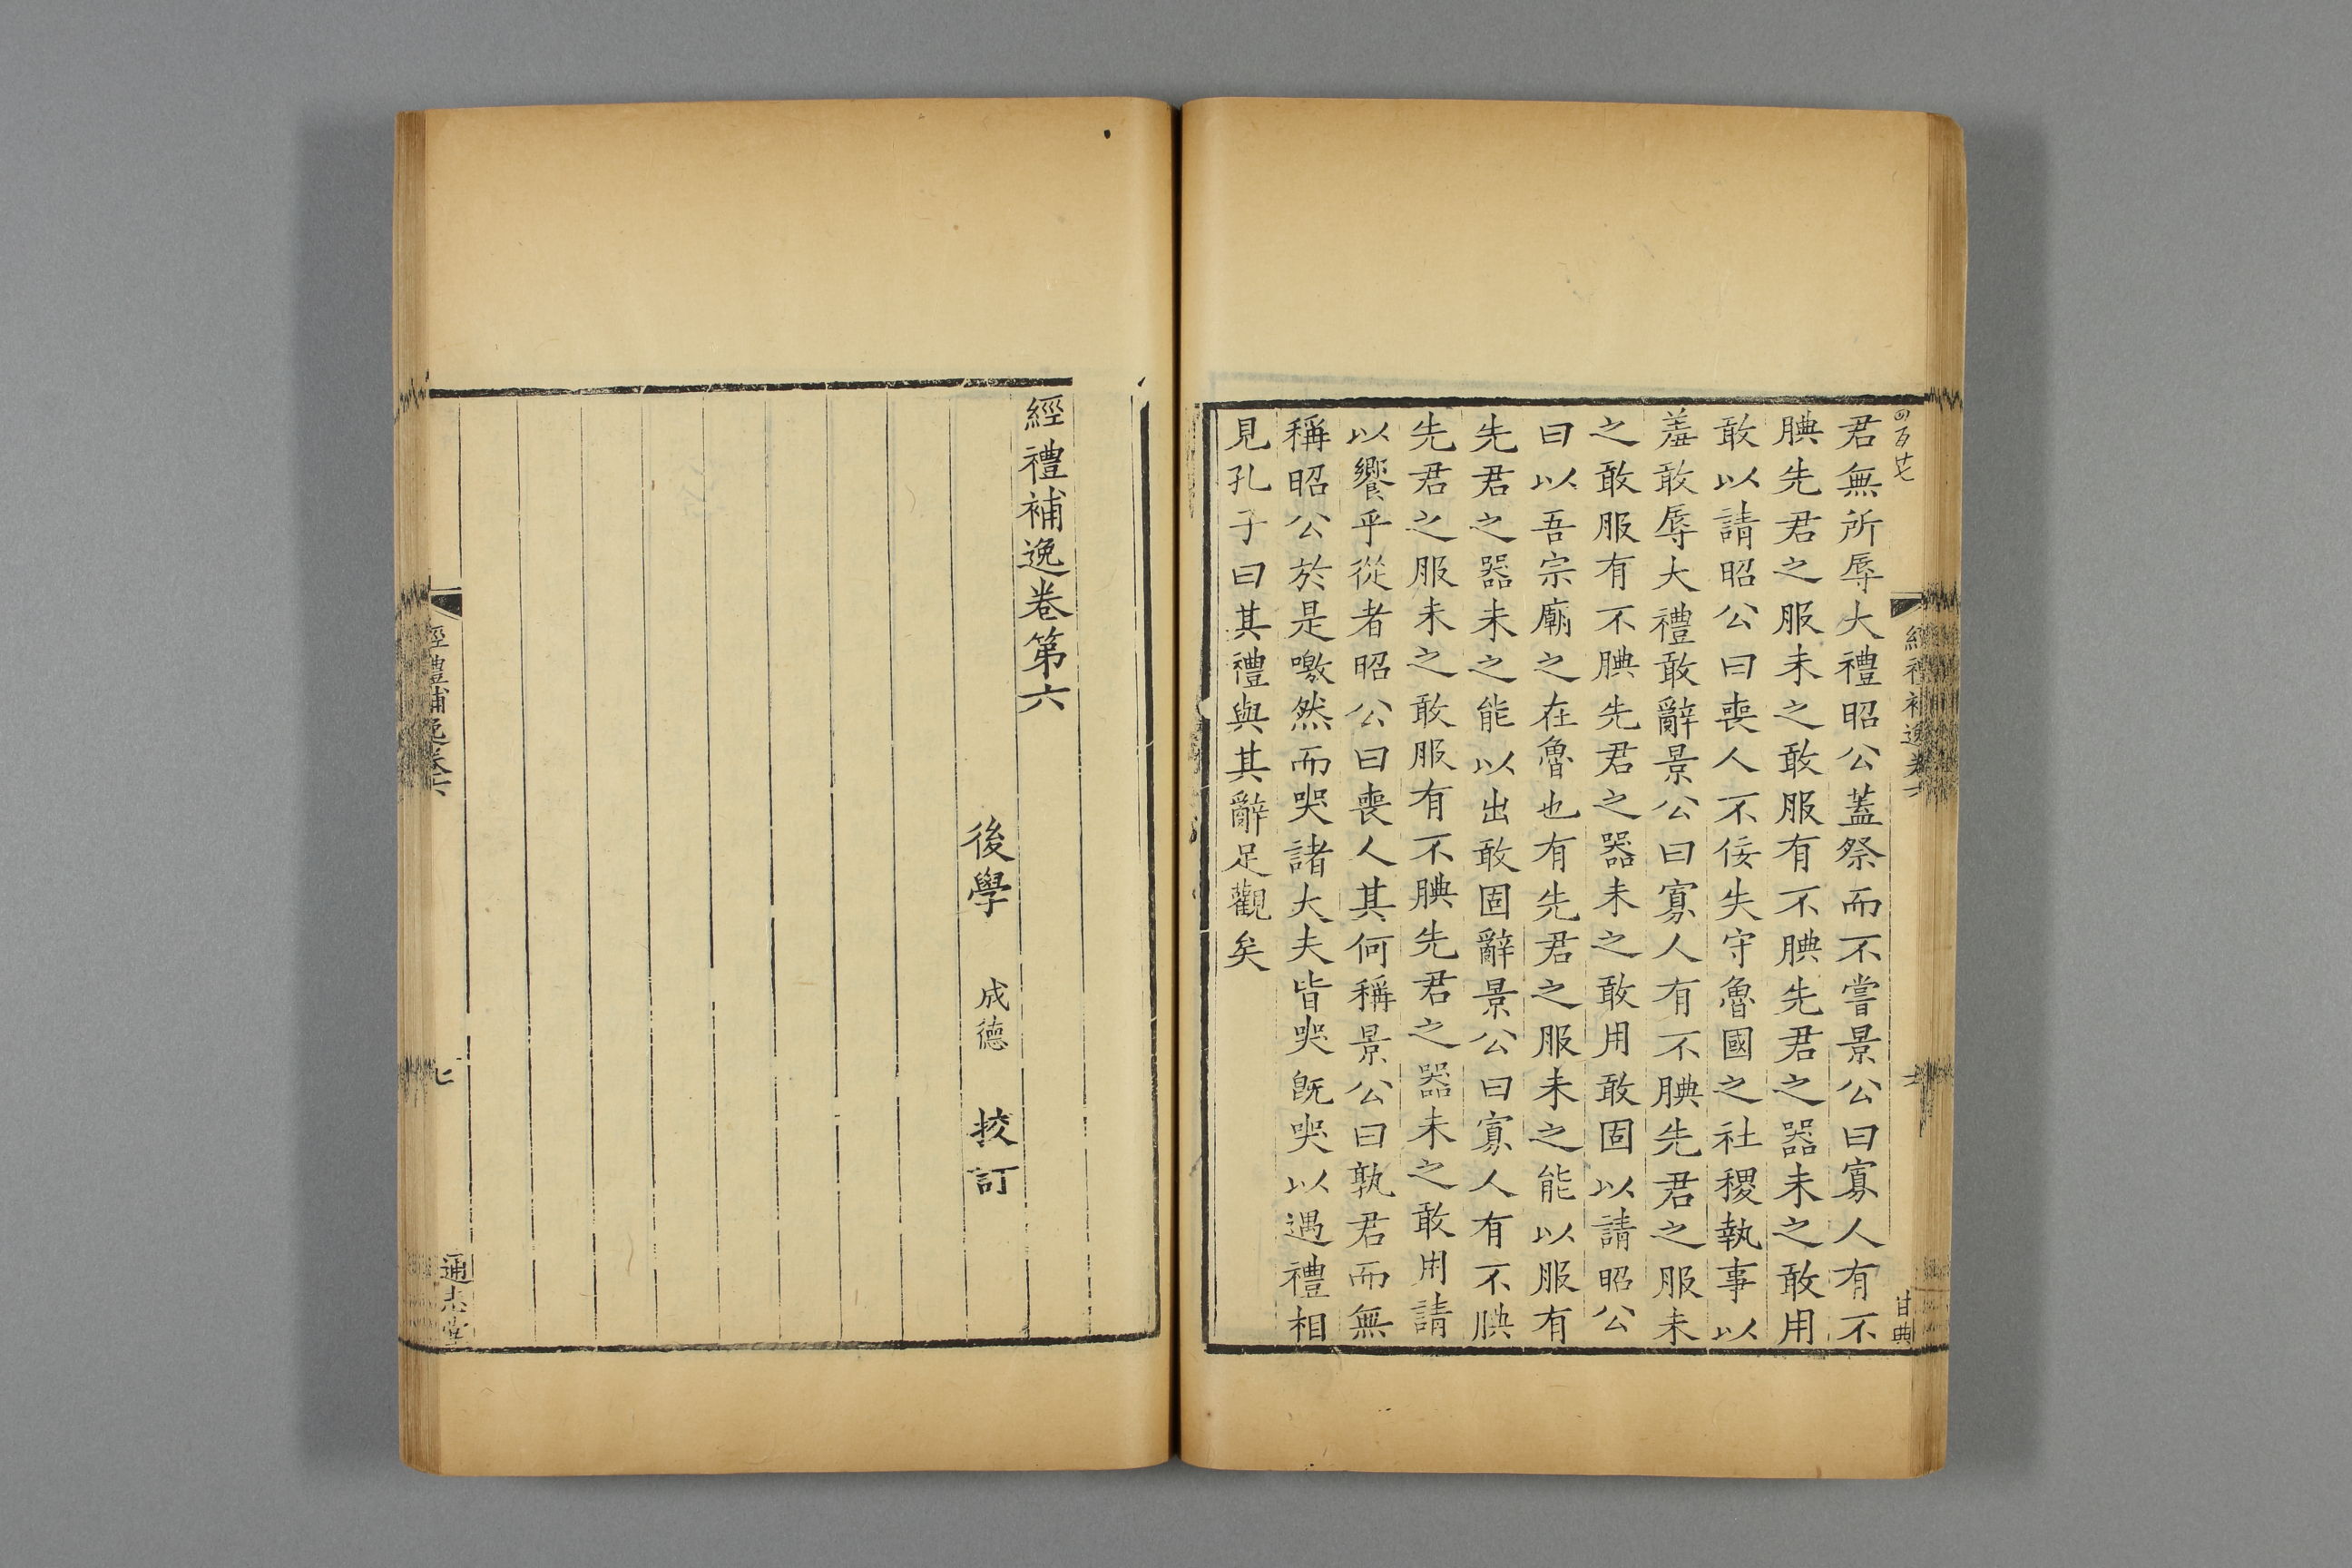 君無所辱大禮昭公蓋祭而不嘗景公曰寡人有不
腆先君之服未之敢服有不腆先君之器未之敢用
敢以請昭公曰喪人不佞失守魯國之社稷執事以
羞敢辱大禮敢辭景公曰寡人有不腆先君之服未
之敢服有不腆先君之器未之敢用敢固以請昭公
曰以吾宗廟之在魯也有先君之服未之能以服有
先君之器未之能以出敢固辭景公曰寡人有不腆
先君之服未之敢服有不腆先君之器未之敢用請
以饗乎從者昭公曰喪人其何稱景公曰孰君而無
稱昭公於是噭然而哭諸大夫皆哭既哭以遇禮相
見孔子曰其禮與其辭足觀矣
甘典
經禮補逸卷第六
後學 成德 挍訂
經禮補逸卷六
七
通志堂